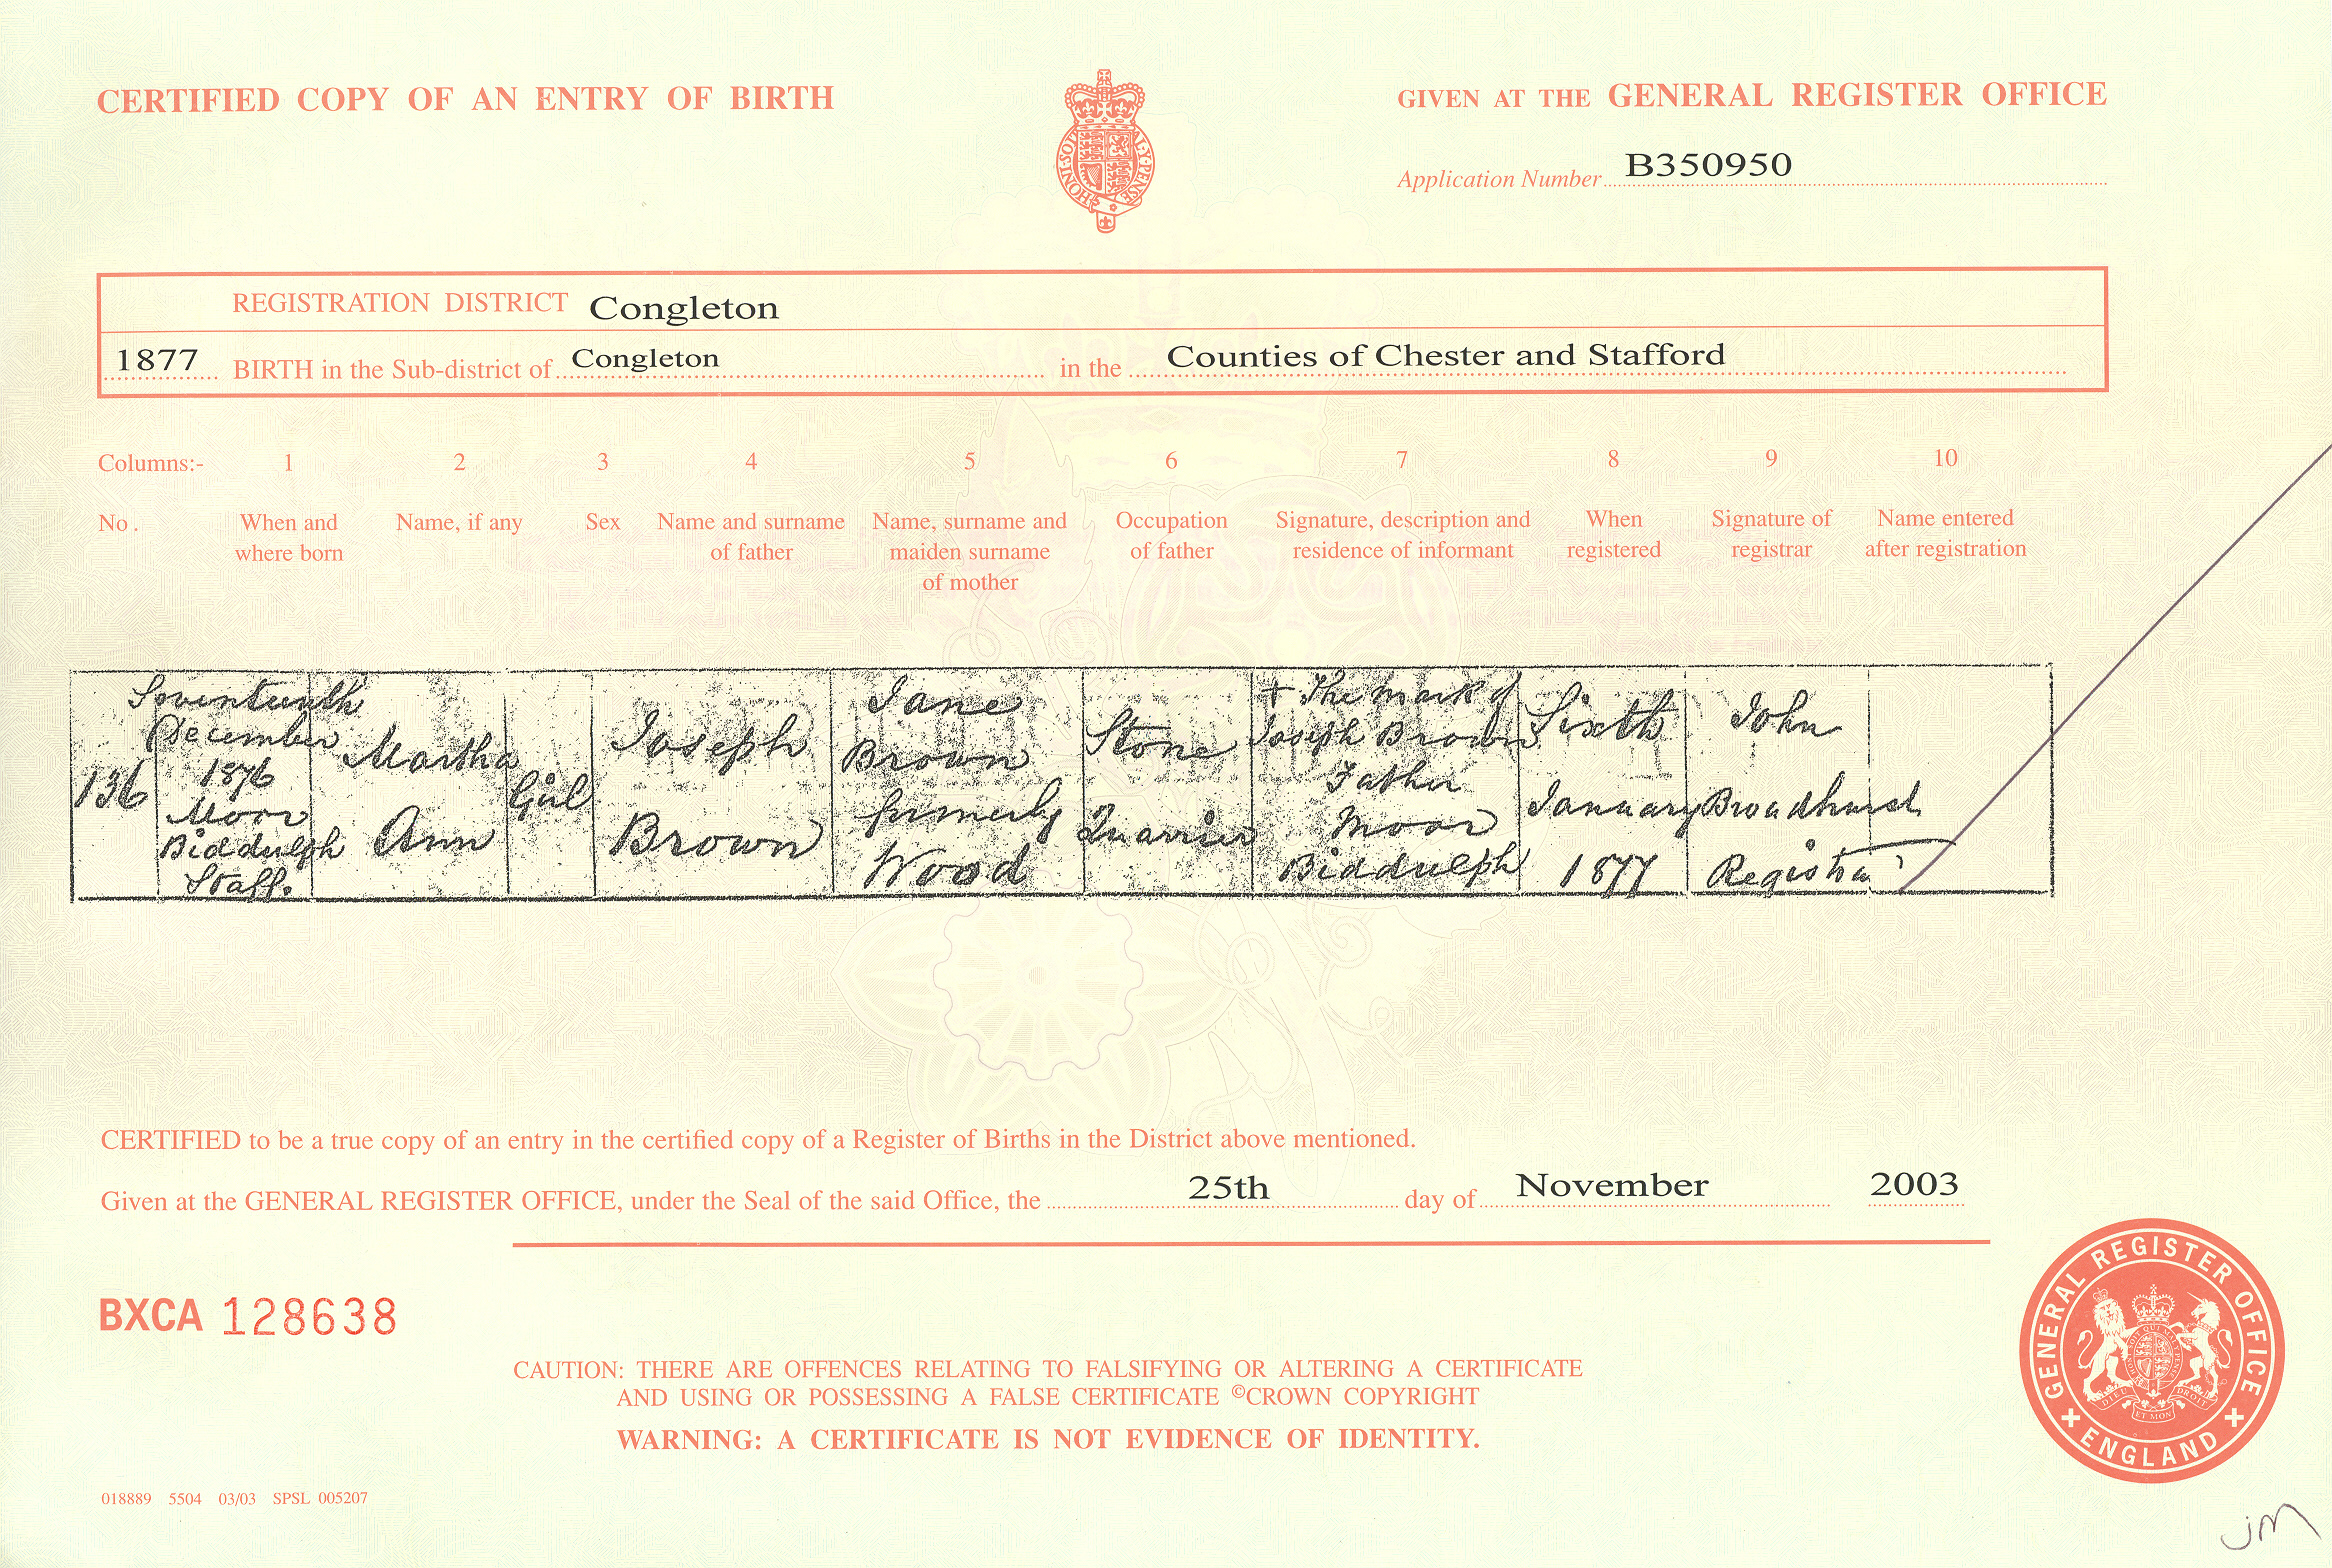 CERTIFIED COPY OF AN ENTRY OF BIRTH
GIVEN AT THE GENERAL REGISTER OFFICE
HONI·SOIT AL·Y·PENSE
Application Number B350950
REGISTRATION DISTRICT Congleton
1877 BIRTH in the Sub-district of Congleton in the Counties of Chester and Stafford
Columns:- 1 2 3 4 5 6 7 8 9 10
No. When and where born
Name, if any
Sex
Name and surname of father
Name, surname and maiden surname of mother
Occupation of father
Signature, description and residence of informant
When registered
Signature of registrar
Name entered after registration
136
Seventeenth
December
1876
Moor
Biddulph
Staff.
Martha
Ann
Girl
Joseph
Brown
Jane
Brown
formerly
Wood
Stone
Quarrier
+ The mark of
Joseph Brown
Father
Moor
Biddulph
Sixth
January
1877
John
Broadhurst
Registrar
CERTIFIED to be a true copy of an entry in the certified copy of a Register of Births in the District above mentioned.
Given at the GENERAL REGISTER OFFICE, under the Seal of the said Office, the 25th day of November 2003
BXCA 128638
CAUTION: THERE ARE OFFENCES RELATING TO FALSIFYING OR ALTERING A CERTIFICATE
AND USING OR POSSESSING A FALSE CERTIFICATE ©CROWN COPYRIGHT
WARNING: A CERTIFICATE IS NOT EVIDENCE OF IDENTITY.
GENERAL REGISTER OFFICE
DIEU ET MON DROIT
ENGLAND
018889 5504 03/03 SPSL 005207
JM